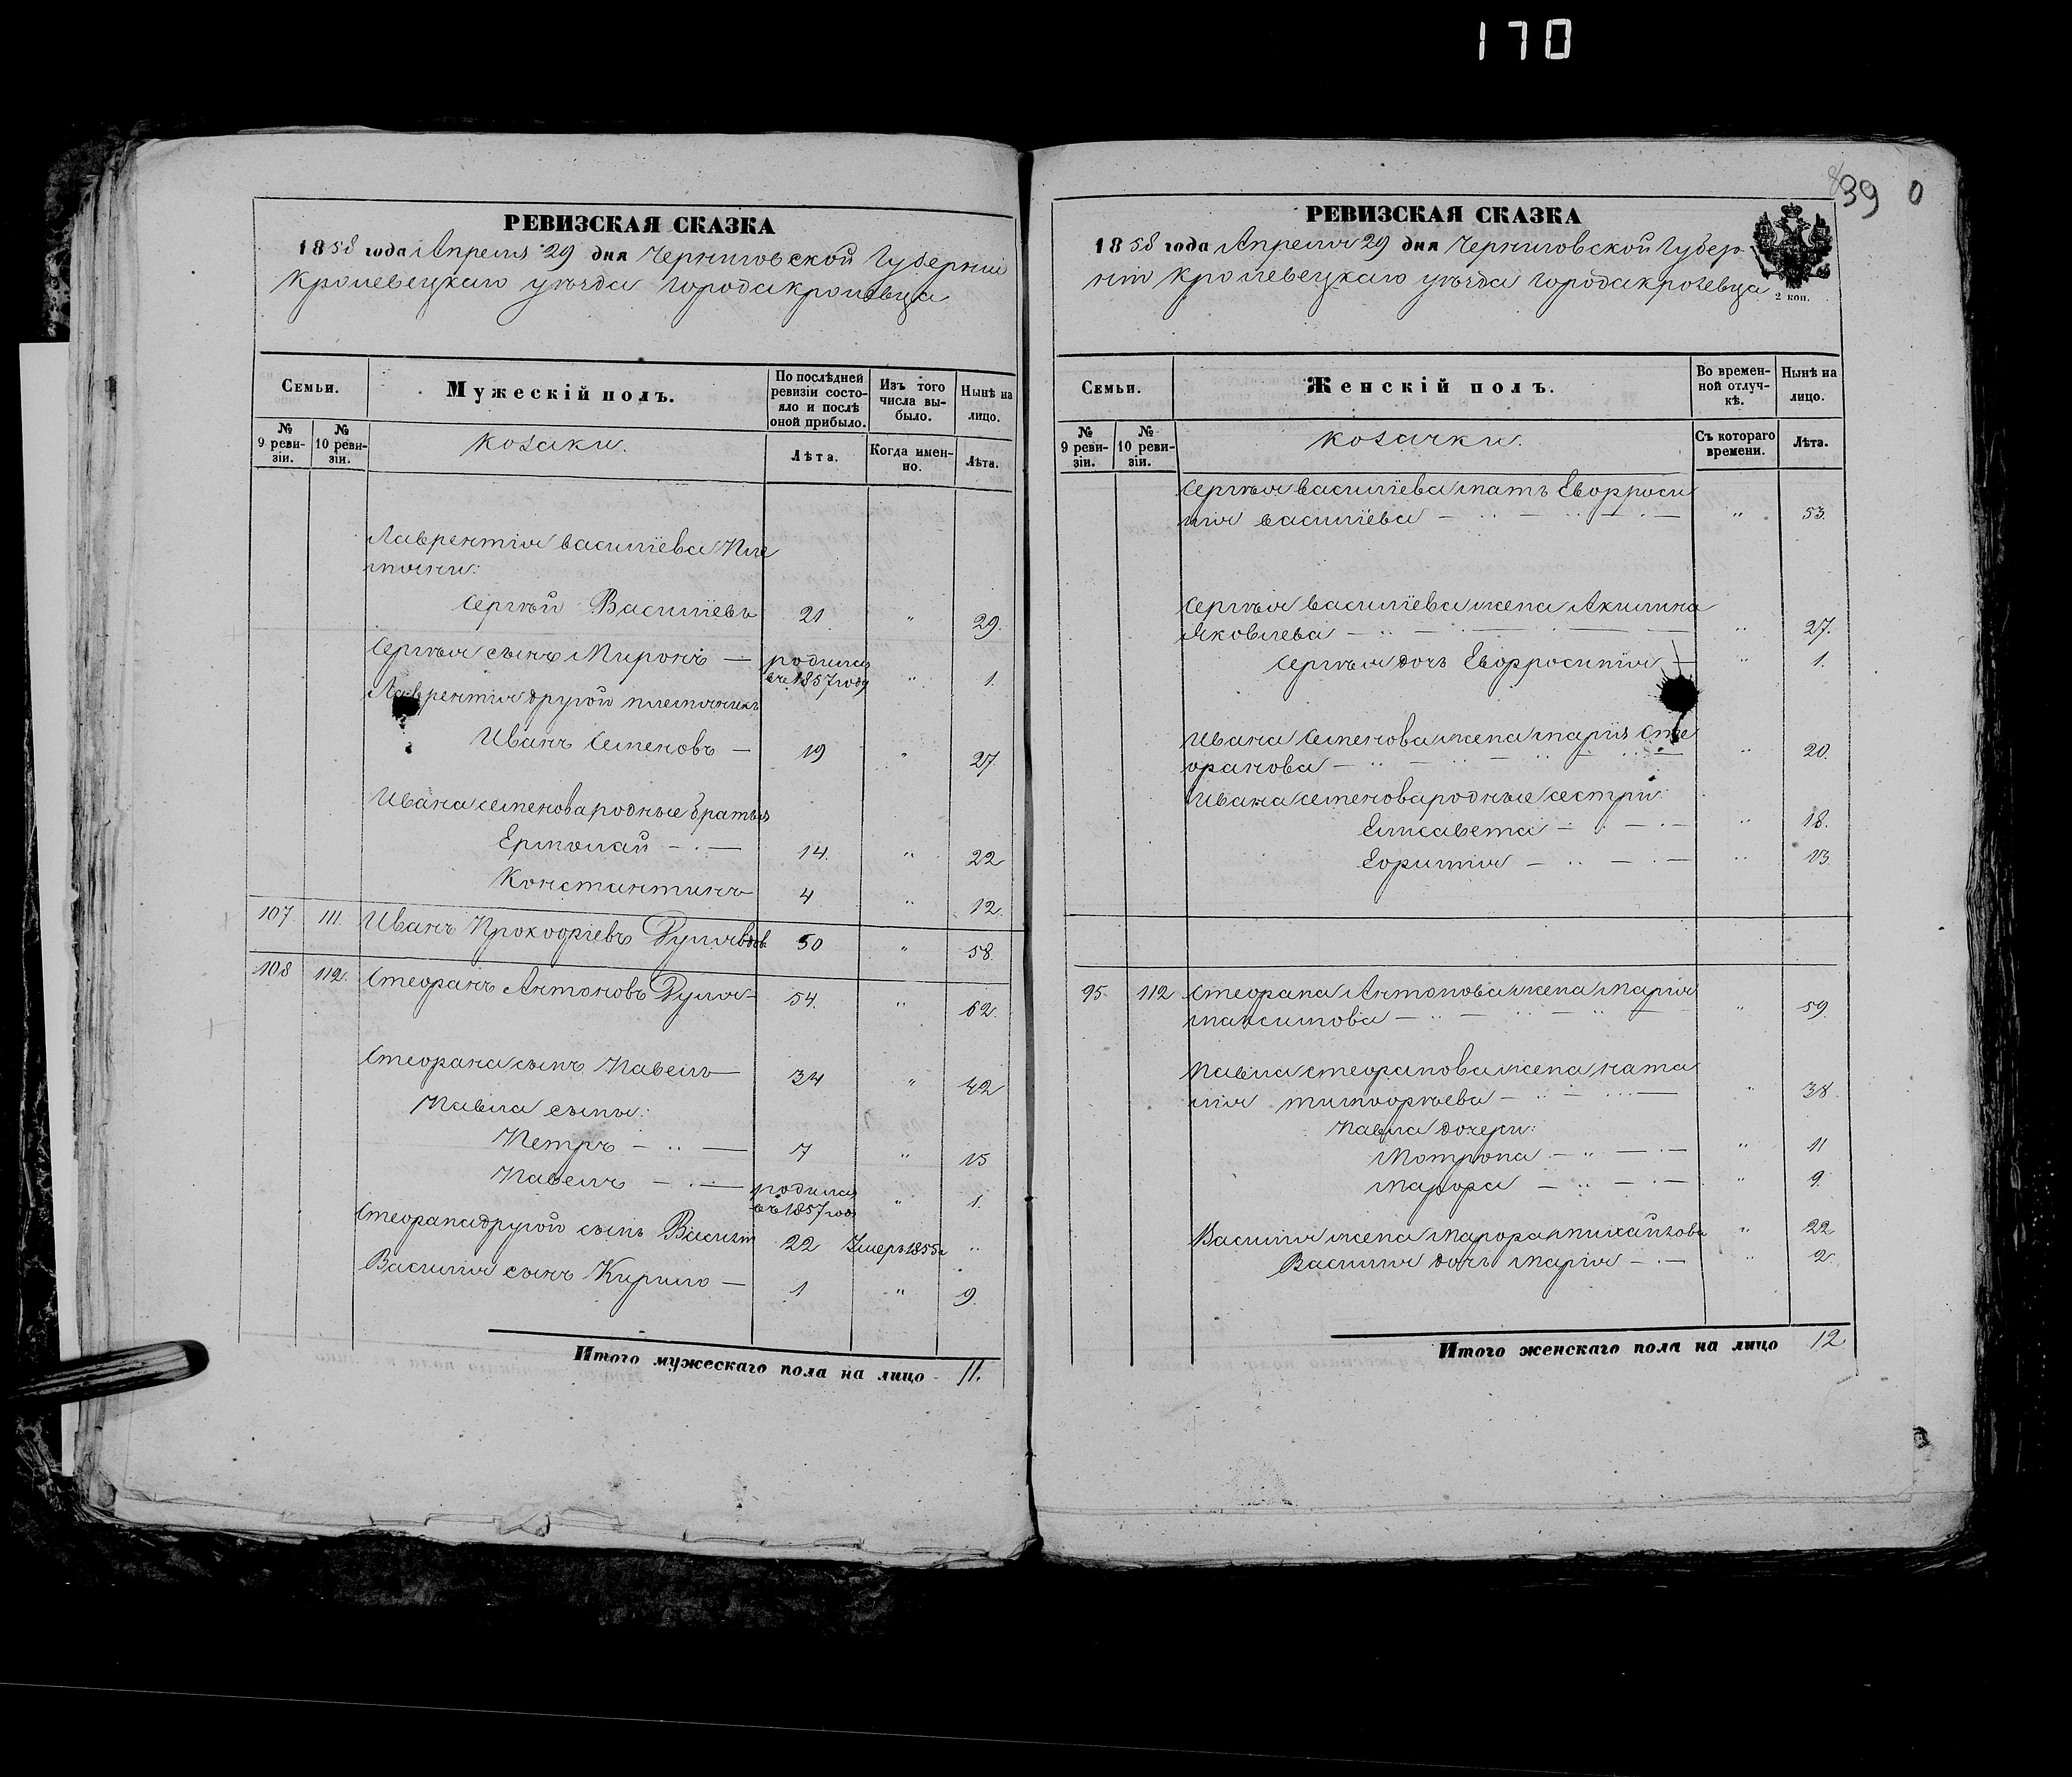 170
РЕВИЗСКАЯ СКАЗКА
1858 года Апреля 29 дня Черниговской Губерніи
Кролевецкаго уѣзда города Кролевца
Семьи.
Мужескій полъ.
По послѣдней ревизіи состояло и послѣ оной прибыло.
Изъ того числа выбыло.
Нынѣ на лицо.
№ 9 ревизіи.
№ 10 ревизіи.
козаки.
Лѣта.
Когда именно.
Лѣта.
Лаврентія Василіева Пле
мяники:
Сергѣй Василіевъ 21 " 29.
Сергѣя сынъ Миронъ — родился
въ 1857 году " 1.
Лаврентія другой племяникъ
Иванъ Семеновъ — 19 " 27.
Ивана Семенова родные братья
Ермолай — . — 14. " 22
Константинъ 4 " 12.
107. 111. Иванъ Прокофіевъ 50 " 58.
108 112. Стефанъ Антоновъ 54. " 62.
Стефана сынъ Павелъ 34 " 42
Павла сыны:
Петръ — .. — 7 " 15
Павелъ — . — родился
въ 1857 году " 1.
Стефана другой сынъ Василій 22 Умеръ 1855 "
Василія сынъ Кирило — 1 " 9.
Итого мужескаго пола на лицо 11.
39 0
РЕВИЗСКАЯ СКАЗКА
1858 года Апреля 29 дня Черниговской Губер
ніи Кролевецкаго уѣзда города Кролевца
2 коп.
Семьи.
Женскій полъ.
Во временной отлучкѣ.
Нынѣ на лицо.
№ 9 ревизіи.
№ 10 ревизіи.
козачки.
Съ котораго времени.
Лѣта.
Сергѣя Василіева мать Евфроси
нія Василіева — .. — .. — . — " 53.
Сергѣя Василіева жена Акилина
Яковлева — .. — . — — " 27.
Сергѣя дочь Евфросинія — " 1.
Ивана Семенова жена Марія Сте
фанова — .. — .. — .. — .. — " 20.
Ивана Семенова родные сестри:
Елисавета — . — . — " 18.
Ефимія — .. — . — " 13.
95 112 Стефана Антонова жена Марія
Максимова — .. — .. — .. — " 59.
Павла Стефанова жена Ната
лія Тимофѣева — .. — ... — " 38.
Павла дочери:
Мотрона — .. — . — " 11
Марфа — .. — . — " 9.
Василія жена Марфа Михайлова " 22
Василія дочь Марія — . — " 2.
Итого женскаго пола на лицо 12